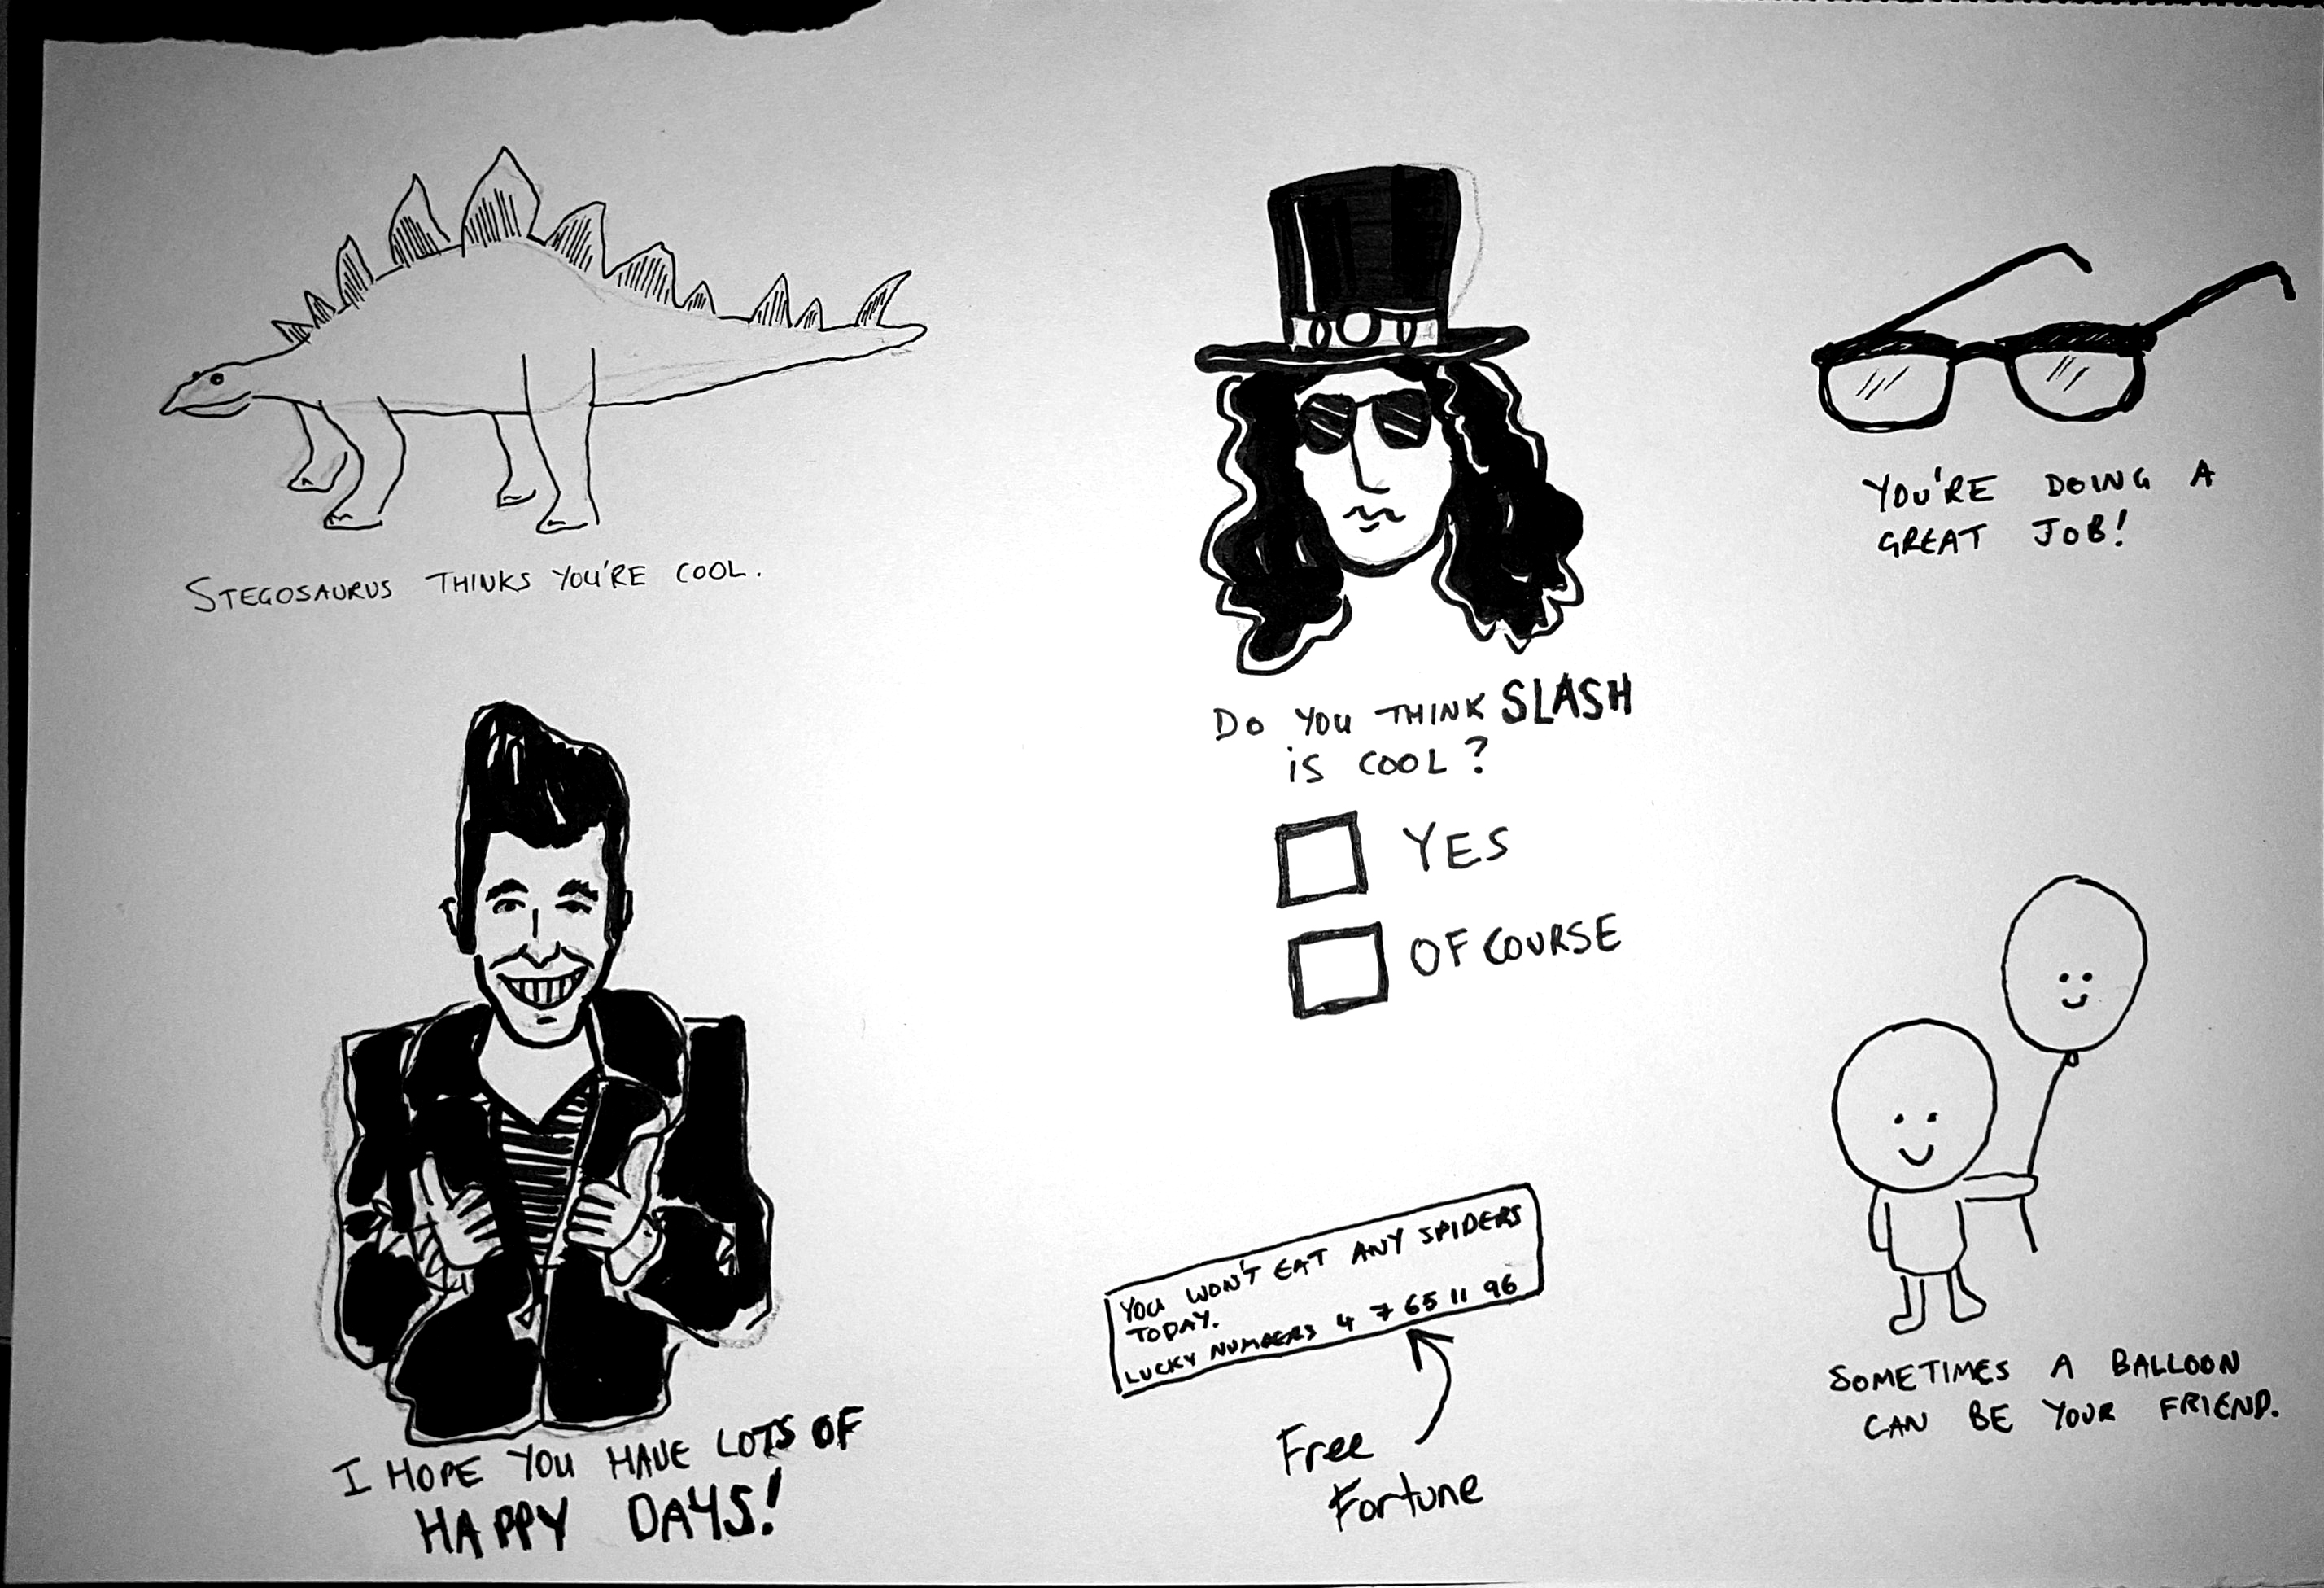 STEGOSAURUS THINKS YOU'RE COOL.
DO YOU THINK SLASH
IS COOL?
YES
OF COURSE
YOU'RE DOING A
GREAT JOB!
I HOPE YOU HAVE LOTS OF
HAPPY DAYS!
YOU WON'T EAT ANY SPIDERS
TODAY.
LUCKY NUMBERS 4 7 65 11 96
Free
Fortune
SOMETIMES A BALLOON
CAN BE YOUR FRIEND.